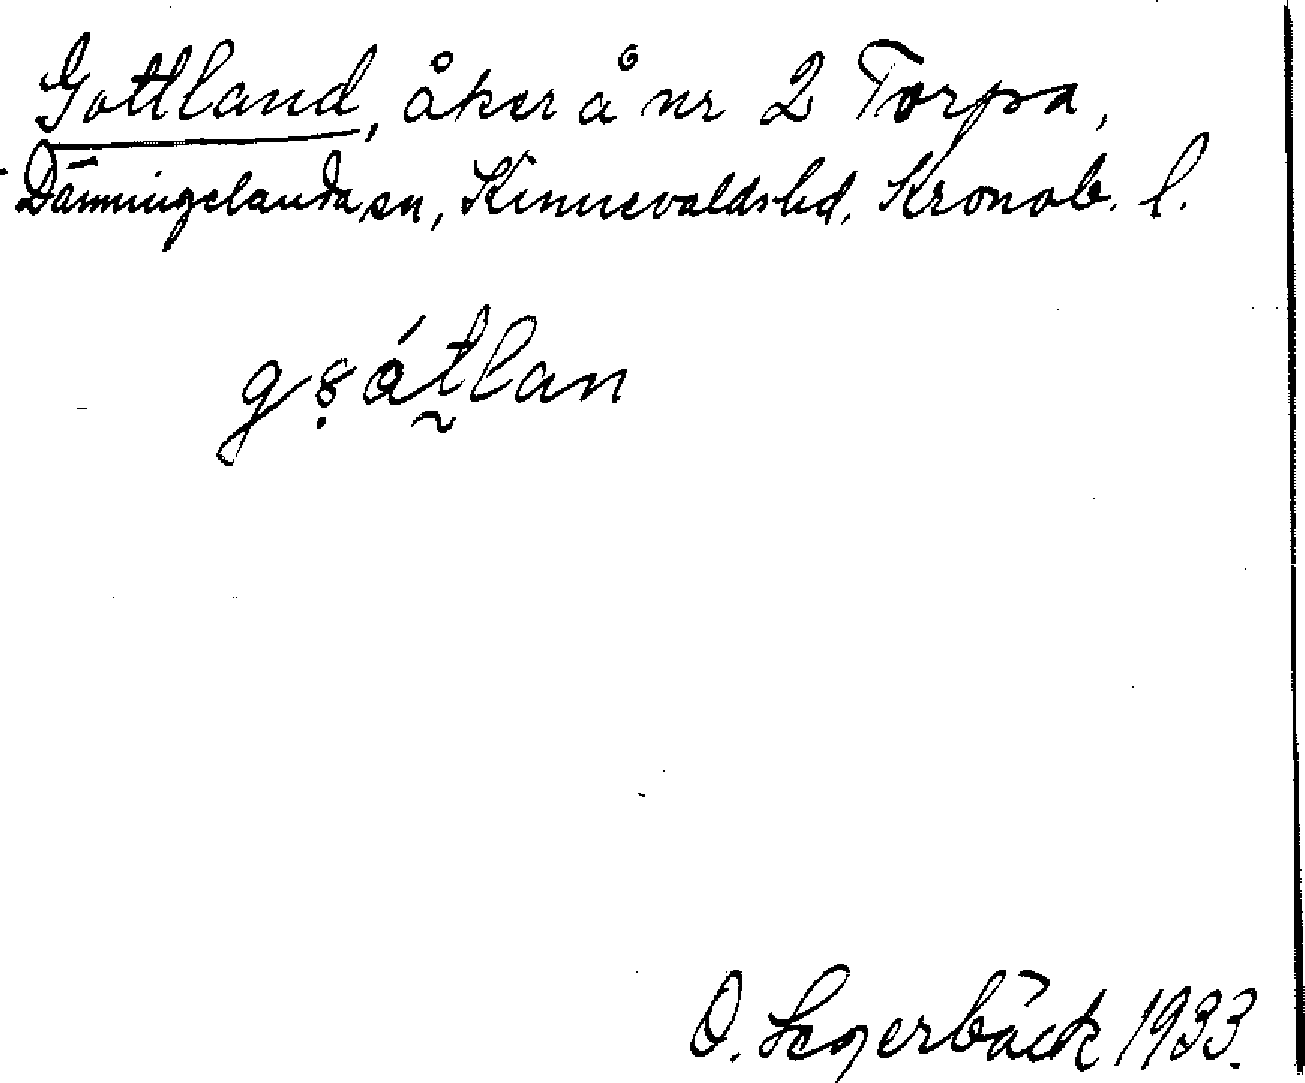 Gottland, åker å nr 2 Torpa,
Dänningelanda sn, Kinnevalds hd, Kronob. l.
O. Segerbäck 1933.